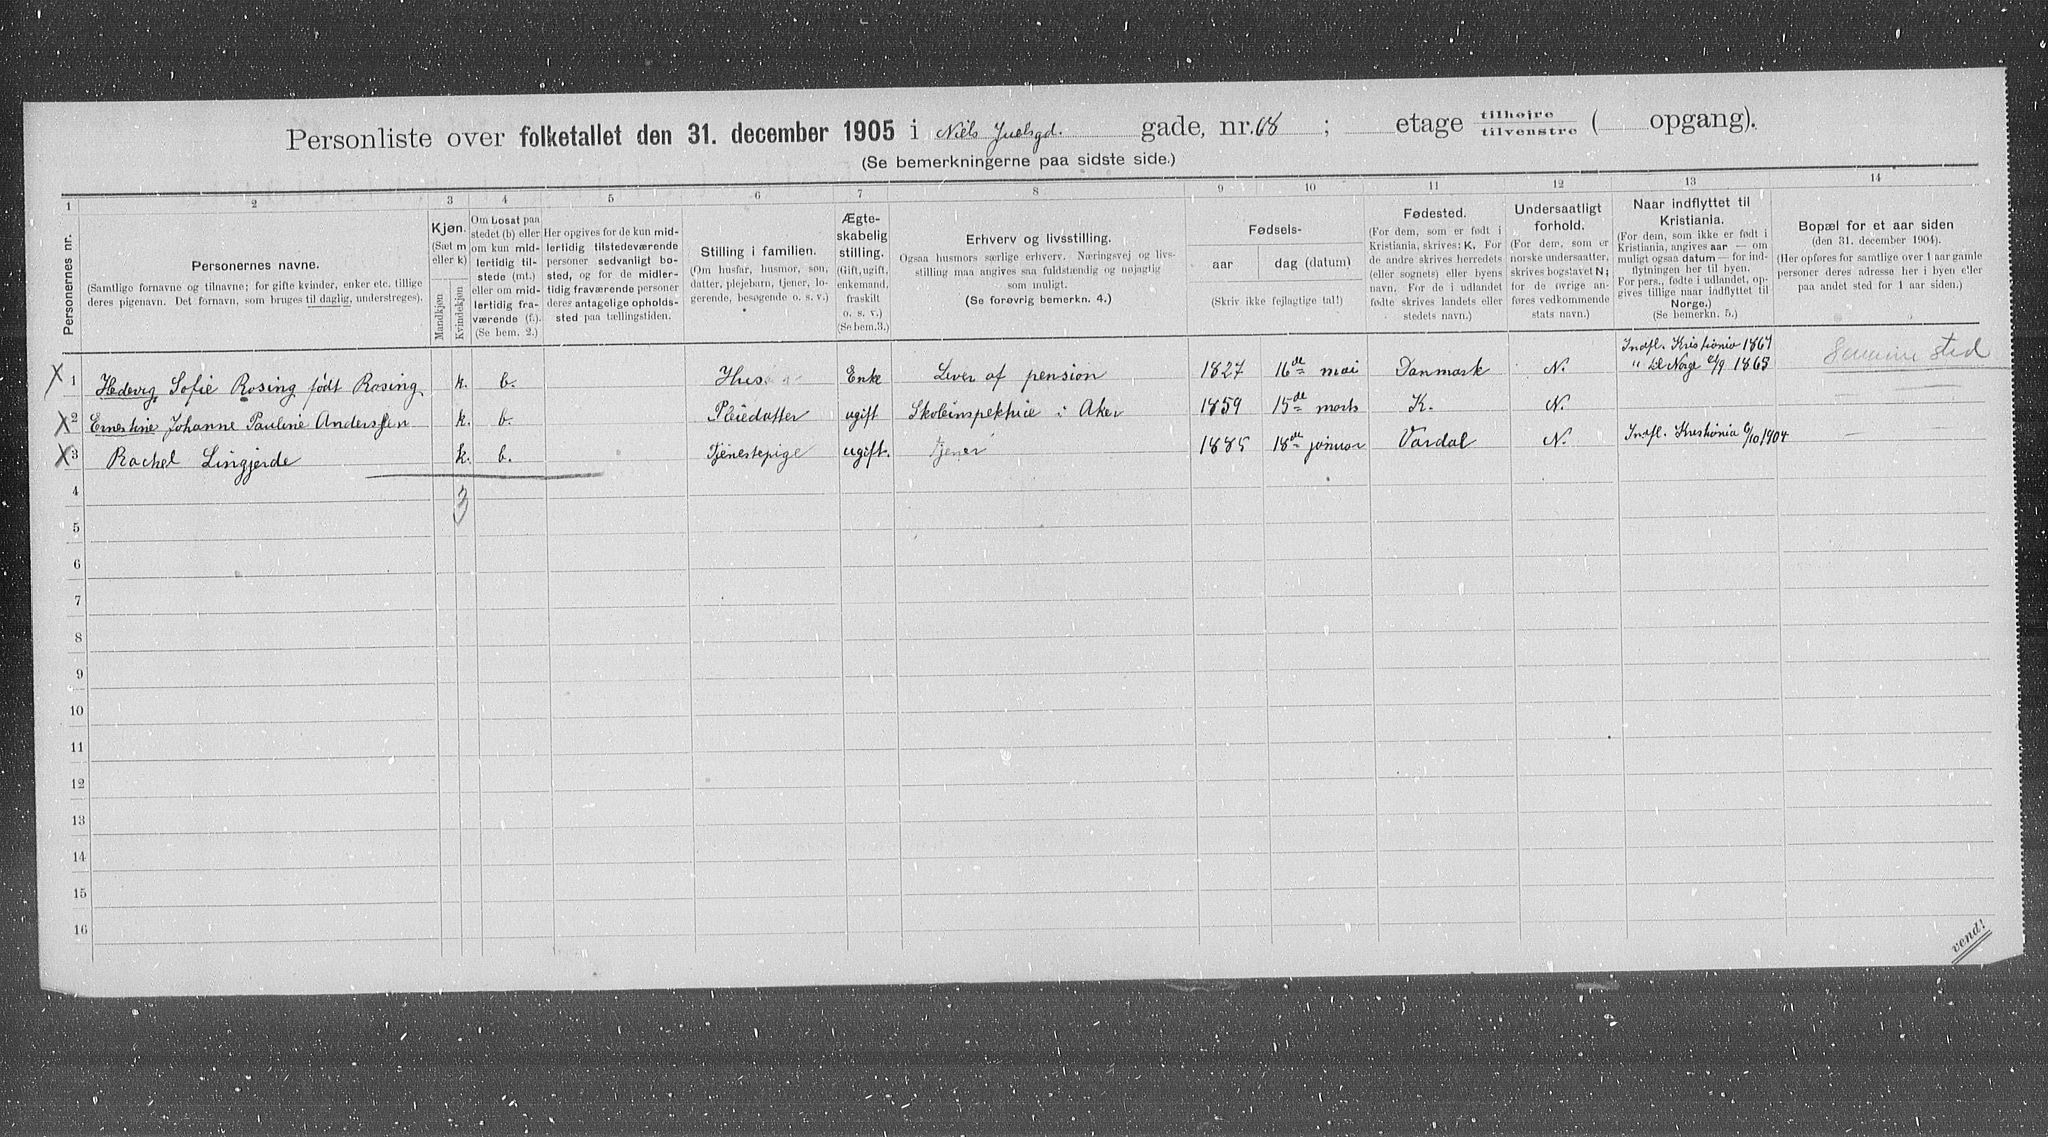 Personliste over folketallet den 31. december 1905 i Niels Juelsgd. gade, nr. 68 ; etage tilhøjre tilvenstre ( opgang).
(Se bemerkningerne paa sidste side.)
1 2 3 4 5 6 7 8 9 10 11 12 13 14
Personernes nr.
Personernes navne.
(Samtlige fornavne og tilnavne; for gifte kvinder, enker etc. tillige
deres pigenavn. Det fornavn, som bruges til daglig, understreges).
Kjøn.
(Sæt m
eller k)
Mandkjøn
Kvindekjøn
Om bosat paa
stedet (b) eller
om kun mid-
lertidig til-
stede (mt.)
eller om mid-
lertidig fra-
værende (f.).
(Se bem. 2.)
Her opgives for de kun mid-
lertidig tilstedeværende
personer sedvanligt bo-
sted, og for de midler-
tidig fraværende personer
deres antagelige opholds-
sted paa tællingstiden.
Stilling i familien.
(Om husfar, husmor, søn,
datter, plejebarn, tjener, lo-
gerende, besøgende o. s. v.)
Ægte-
skabelig
stilling.
(Gift, ugift,
enkemand,
fraskilt
o. s. v.)
(Se bem.3.)
Erhverv og livsstilling.
Ogsaa husmors særlige erhverv. Næringsvej og livs-
stilling maa angives saa fuldstændig og nøjagtig
som muligt.
(Se forøvrig bemerkn. 4.)
Fødsels-
aar dag (datum)
(Skriv ikke fejlagtige tal!)
Fødested.
(For dem, som er født i
Kristiania, skrives: K. For
de andre skrives herredets
(eller sognets) eller byens
navn. For de i udlandet
fødte skrives landets eller
stedets navn.)
Undersaatligt
forhold.
(For dem, som er
norske undersaatter,
skrives bogstavet N;
for de øvrige an-
føres vedkommende
stats navn.)
Naar indflyttet til
Kristiania.
(For dem, som ikke er født i
Kristiania, angives aar — om
muligt ogsaa datum — for ind-
flytningen her til byen.
For pers., fødte i udlandet, op-
gives tillige naar indflyttet til
Norge.)
(Se bemerkn. 5.)
Bopæl for et aar siden
(den 31. december 1904).
(Her opføres for samtlige over 1 aar gamle
personer deres adresse her i byen eller
paa andet sted for 1 aar siden.)
X 1 Hedevig Sofie Rosing født Rosing k. b. Hus Enke Lever af pension 1827 16de mai Danmark N. Indfl. Kristiania 1867
" til Norge 1865 Samme sted
X 2 Ernestine Johanne Pauline Anderssen k. b. Pleiedatter ugift Skoleinspektrice i Aker 1859 15de marts K. N.
X 3 Rachel Lingjerde k. b. Tjenestepige ugift. tjener 1885 18de januar Vardal N. Indfl. Kristiania 6/10 1904 —
4 3
5
6
7
8
9
10
11
12
13
14
15
16
vend!